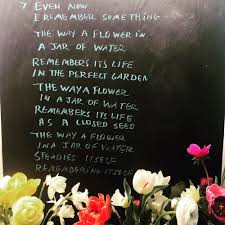 7 EVEN NOW
I REMEMBER SOMETHING
THE WAY A FLOWER IN
A JAR OF WATER
REMEMBERS ITS LIFE
IN THE PERFECT GARDEN
THE WAY A FLOWER
IN A JAR OF WATER
REMEMBERS ITS LIFE
AS A CLOSED SEED
THE WAY A FLOWER
IN A JAR OF WATER
STEADIES ITSELF
REMEMBERING ITSELF